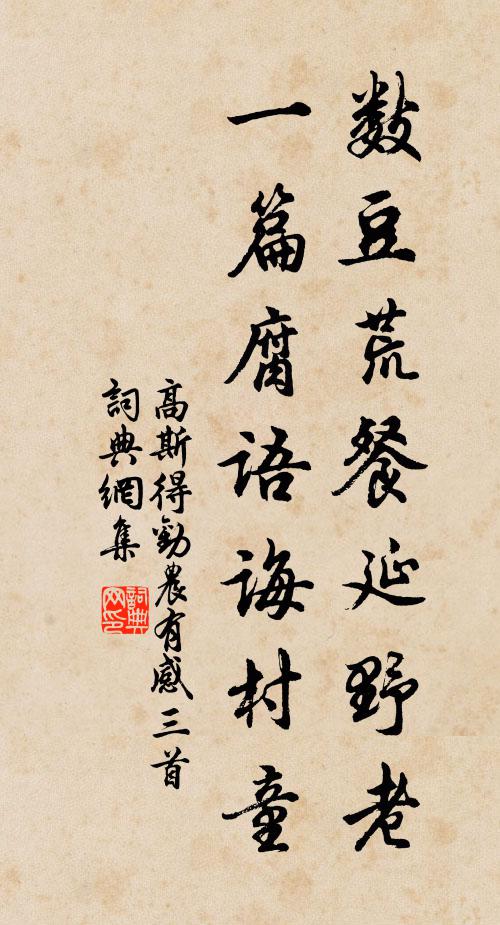 数豆荒餐延野老
一篇腐語誨村童
高斯得勸農有感三首
詞典網集
詞典网印